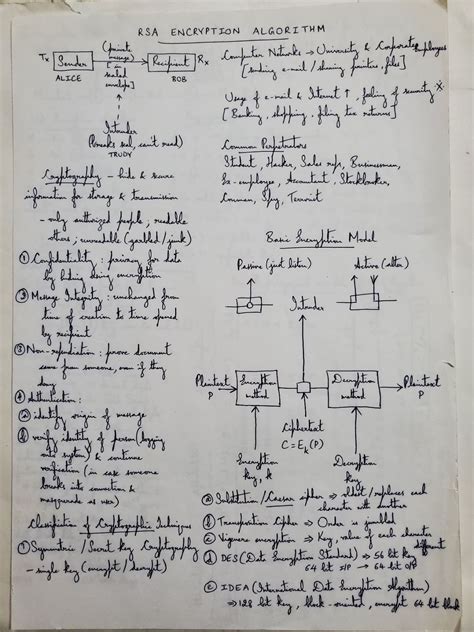 RSA ENCRYPTION ALGORITHM
Tx
Sender
ALICE
(private
message)
[in
sealed
envelope]
Recipient
BOB
Rx
Intruder
(breaks seal, can't read)
TRUDY
Cryptography - hide & secure
information for storage & transmission
- only authorized people; readable
others; unreadable (garbled/junk)
① Confidentiality: privacy for data
by hiding using encryption
② Message Integrity: unchanged from
time of creation to time opened
by recipient
③ Non-repudiation: prove document
came from someone, even if they
deny
④ Authentication:
ⓐ identify origin of message
ⓑ verify identity of person (logging
onto system) & continue
verification (in case someone
breaks into connection &
masquerade as user)
Classification of Cryptographic Techniques
① Symmetric / Secret Key Cryptography
- single key (encrypt / decrypt)
Computer Networks → University & Corporate employees
[sending e-mail / sharing printers, files]
Usage of e-mail & Internet ↑, feeling of security
[Banking, shopping, filing tax returns]
Common Perpetrators
Student, Hacker, Sales reps, Businessman,
Ex-employee, Accountant, Stockbroker,
Conman, Spy, Terrorist
Basic Encryption Model
Passive (just listen)
Active (alter)
Intruder
Plaintext
P
Encryption
method
Decryption
method
Plaintext
P
Ciphertext
C = Ek(P)
Encryption
key, k
Decryption
key
ⓐ Substitution / Caesar cipher → shift / replaces each
character with another
ⓑ Transposition Cipher → Order is jumbled
ⓒ Vigenere encryption → Key, value of each character
different
ⓓ DES (Data Encryption Standard) → 56 bit key
64 bit i/p → 64 bit o/p
ⓔ IDEA (International Data Encryption Algorithm)
→ 128 bit key, block-oriented, encrypt 64 bit block